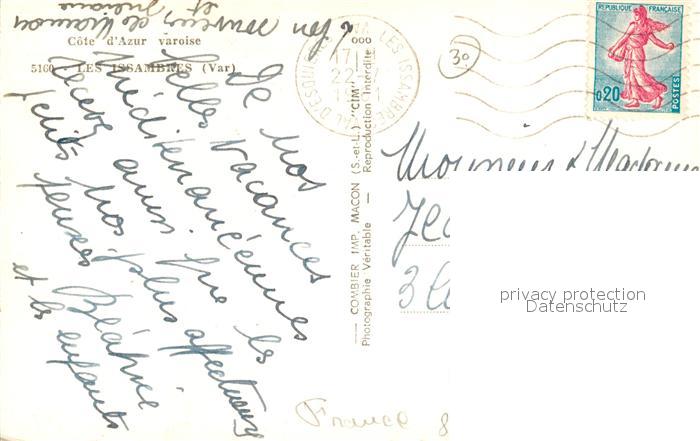 Côte d'Azur varoise
5160 - LES ISSAMBRES (Var)
De nos
belles vacances
méditerranéennes
recevez ainsi que les
petits nos plus affectueuses
pensées
Béatrice
et les enfants
bon souvenir de
et
COMBIER IMP. MACON (S.-et-L.) "CIM"
Photographie Véritable - Reproduction Interdite
LES ISSAMBRES
17
22
30
REPUBLIQUE FRANÇAISE
0,20
POSTES
Monsieur & Madame
3
privacy protection
Datenschutz
France
8